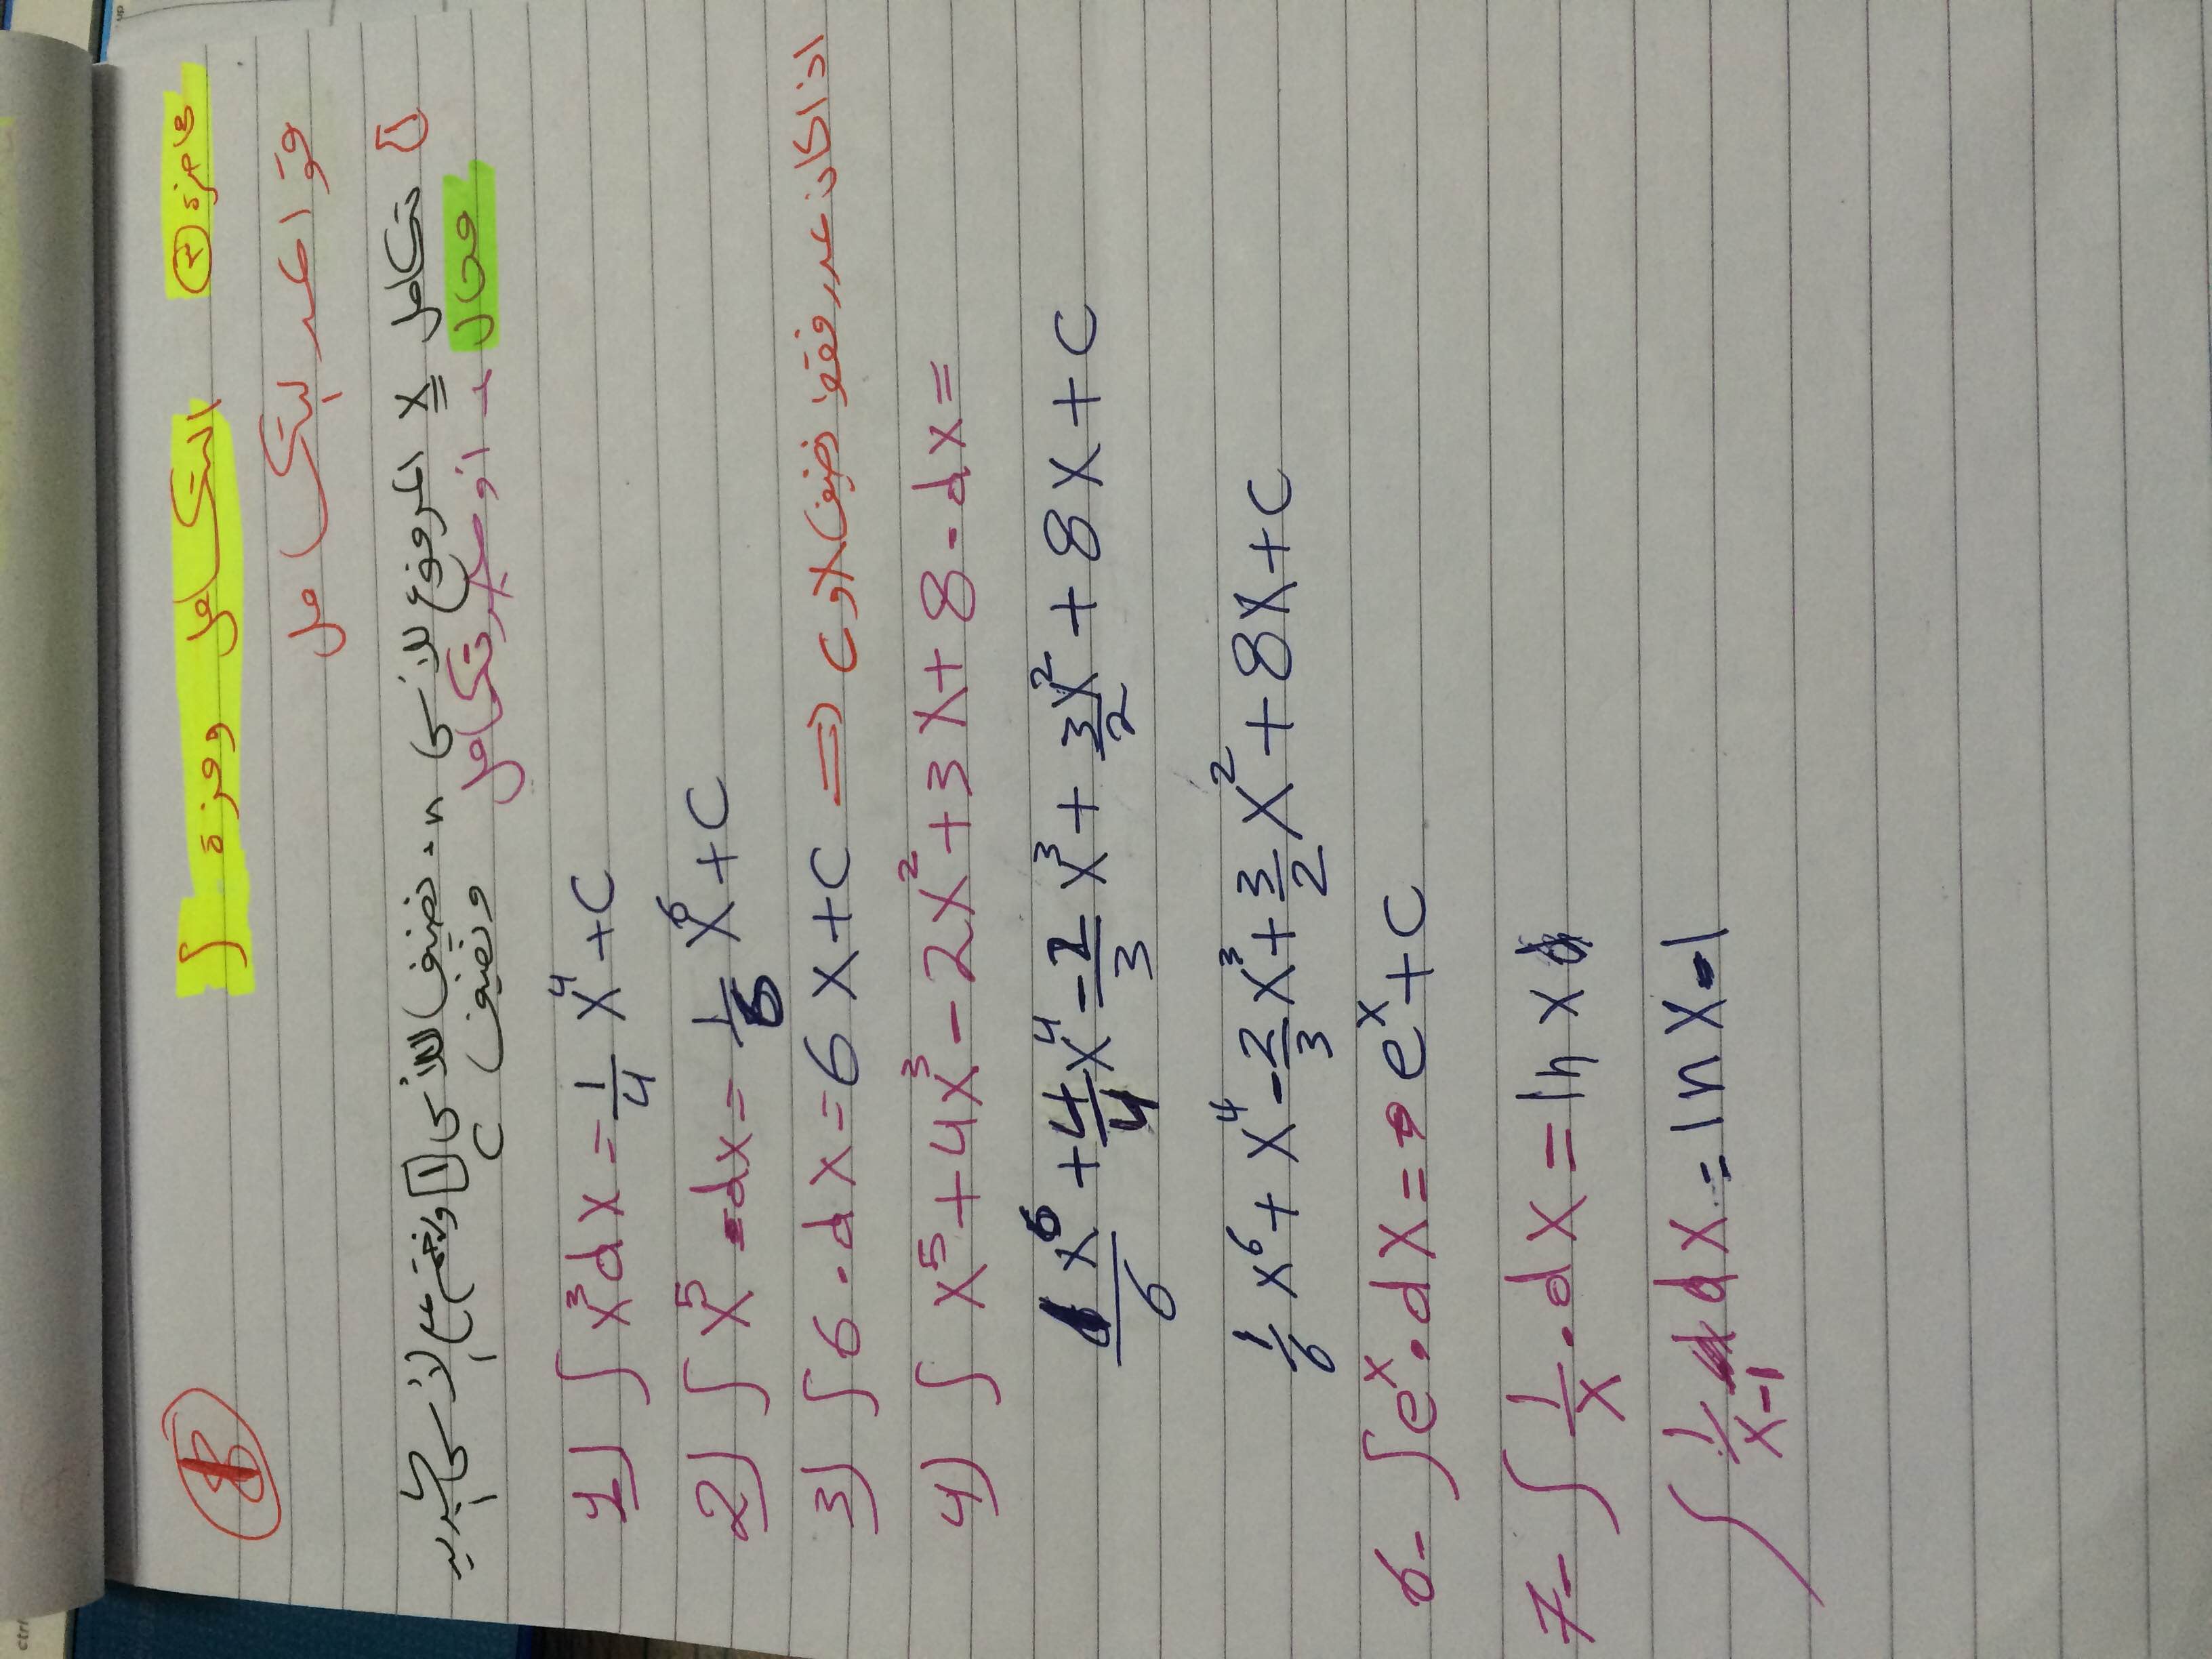 محاضرة ② التكامل ورمزه ∫ 8
قواعد التكامل
1 تكامل x المرفوع للأس n . نضيف للأس 1 ونقسم ع الأس الجديد ونضيف C
مثال - اوجد تكامل
1) ∫ x³ dx = 1/4 x⁴ + C
2) ∫ x⁵ dx = 1/6 x⁶ + C
3) ∫ 6 . dx = 6x + C ⇐ اذا كان عدد فقط نضيف x و C
4) ∫ x⁵ + 4x³ - 2x² + 3x + 8 . dx =
1x⁶/6 + 4/4 x⁴ - 2/3 x³ + 3/2 x² + 8x + C
1/6 x⁶ + x⁴ - 2/3 x³ + 3/2 x² + 8x + C
6- ∫ eˣ . dx = eˣ + C
7- ∫ 1/x . dx = ln x
∫ 1/x-1 dx = ln x-1